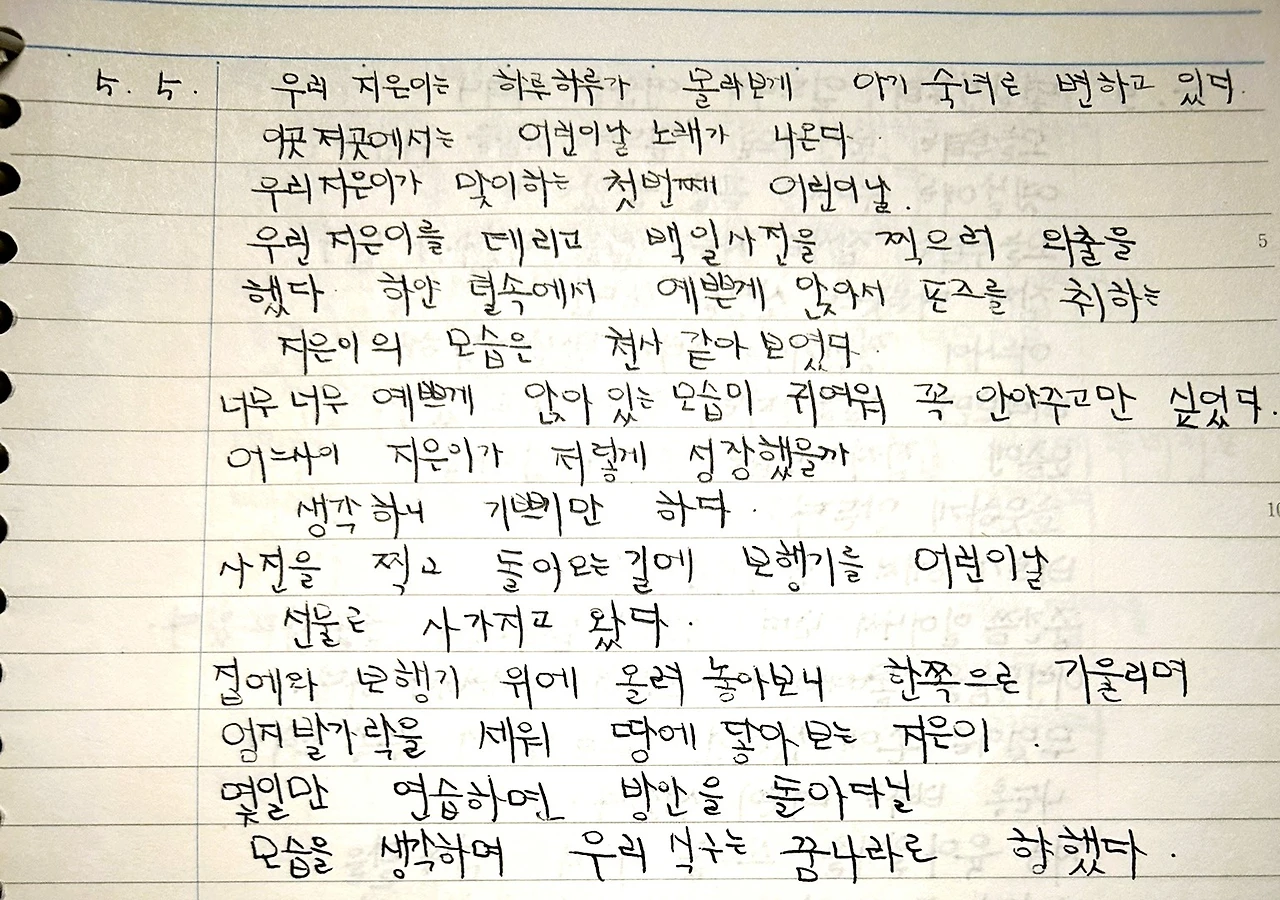 5. 5. 우리 지은이는 하루하루가 몰라보게 아기 숙녀로 변하고 있다.
이곳저곳에서는 어린이날 노래가 나온다.
우리 지은이가 맞이하는 첫번째 어린이날.
우린 지은이를 데리고 백일사진을 찍으러 외출을
했다. 하얀 털속에서 예쁜게 앉아서 포즈를 취하는
지은이의 모습은 천사 같아 보였다.
너무 너무 예쁘게 앉아 있는 모습이 귀여워 꼭 안아주고만 싶었다.
어느사이 지은이가 저렇게 성장했을까
생각하니 기쁘기만 하다.
사진을 찍고 돌아오는 길에 보행기를 어린이날
선물로 사가지고 왔다.
집에와 보행기 위에 올려 놓아보니 한쪽으로 기울리며
엄지발가락을 세워 땅에 닿아 보는 지은이.
몇일만 연습하면 방안을 돌아다닐
모습을 생각하며 우리 식구는 꿈나라로 향했다.
5
10